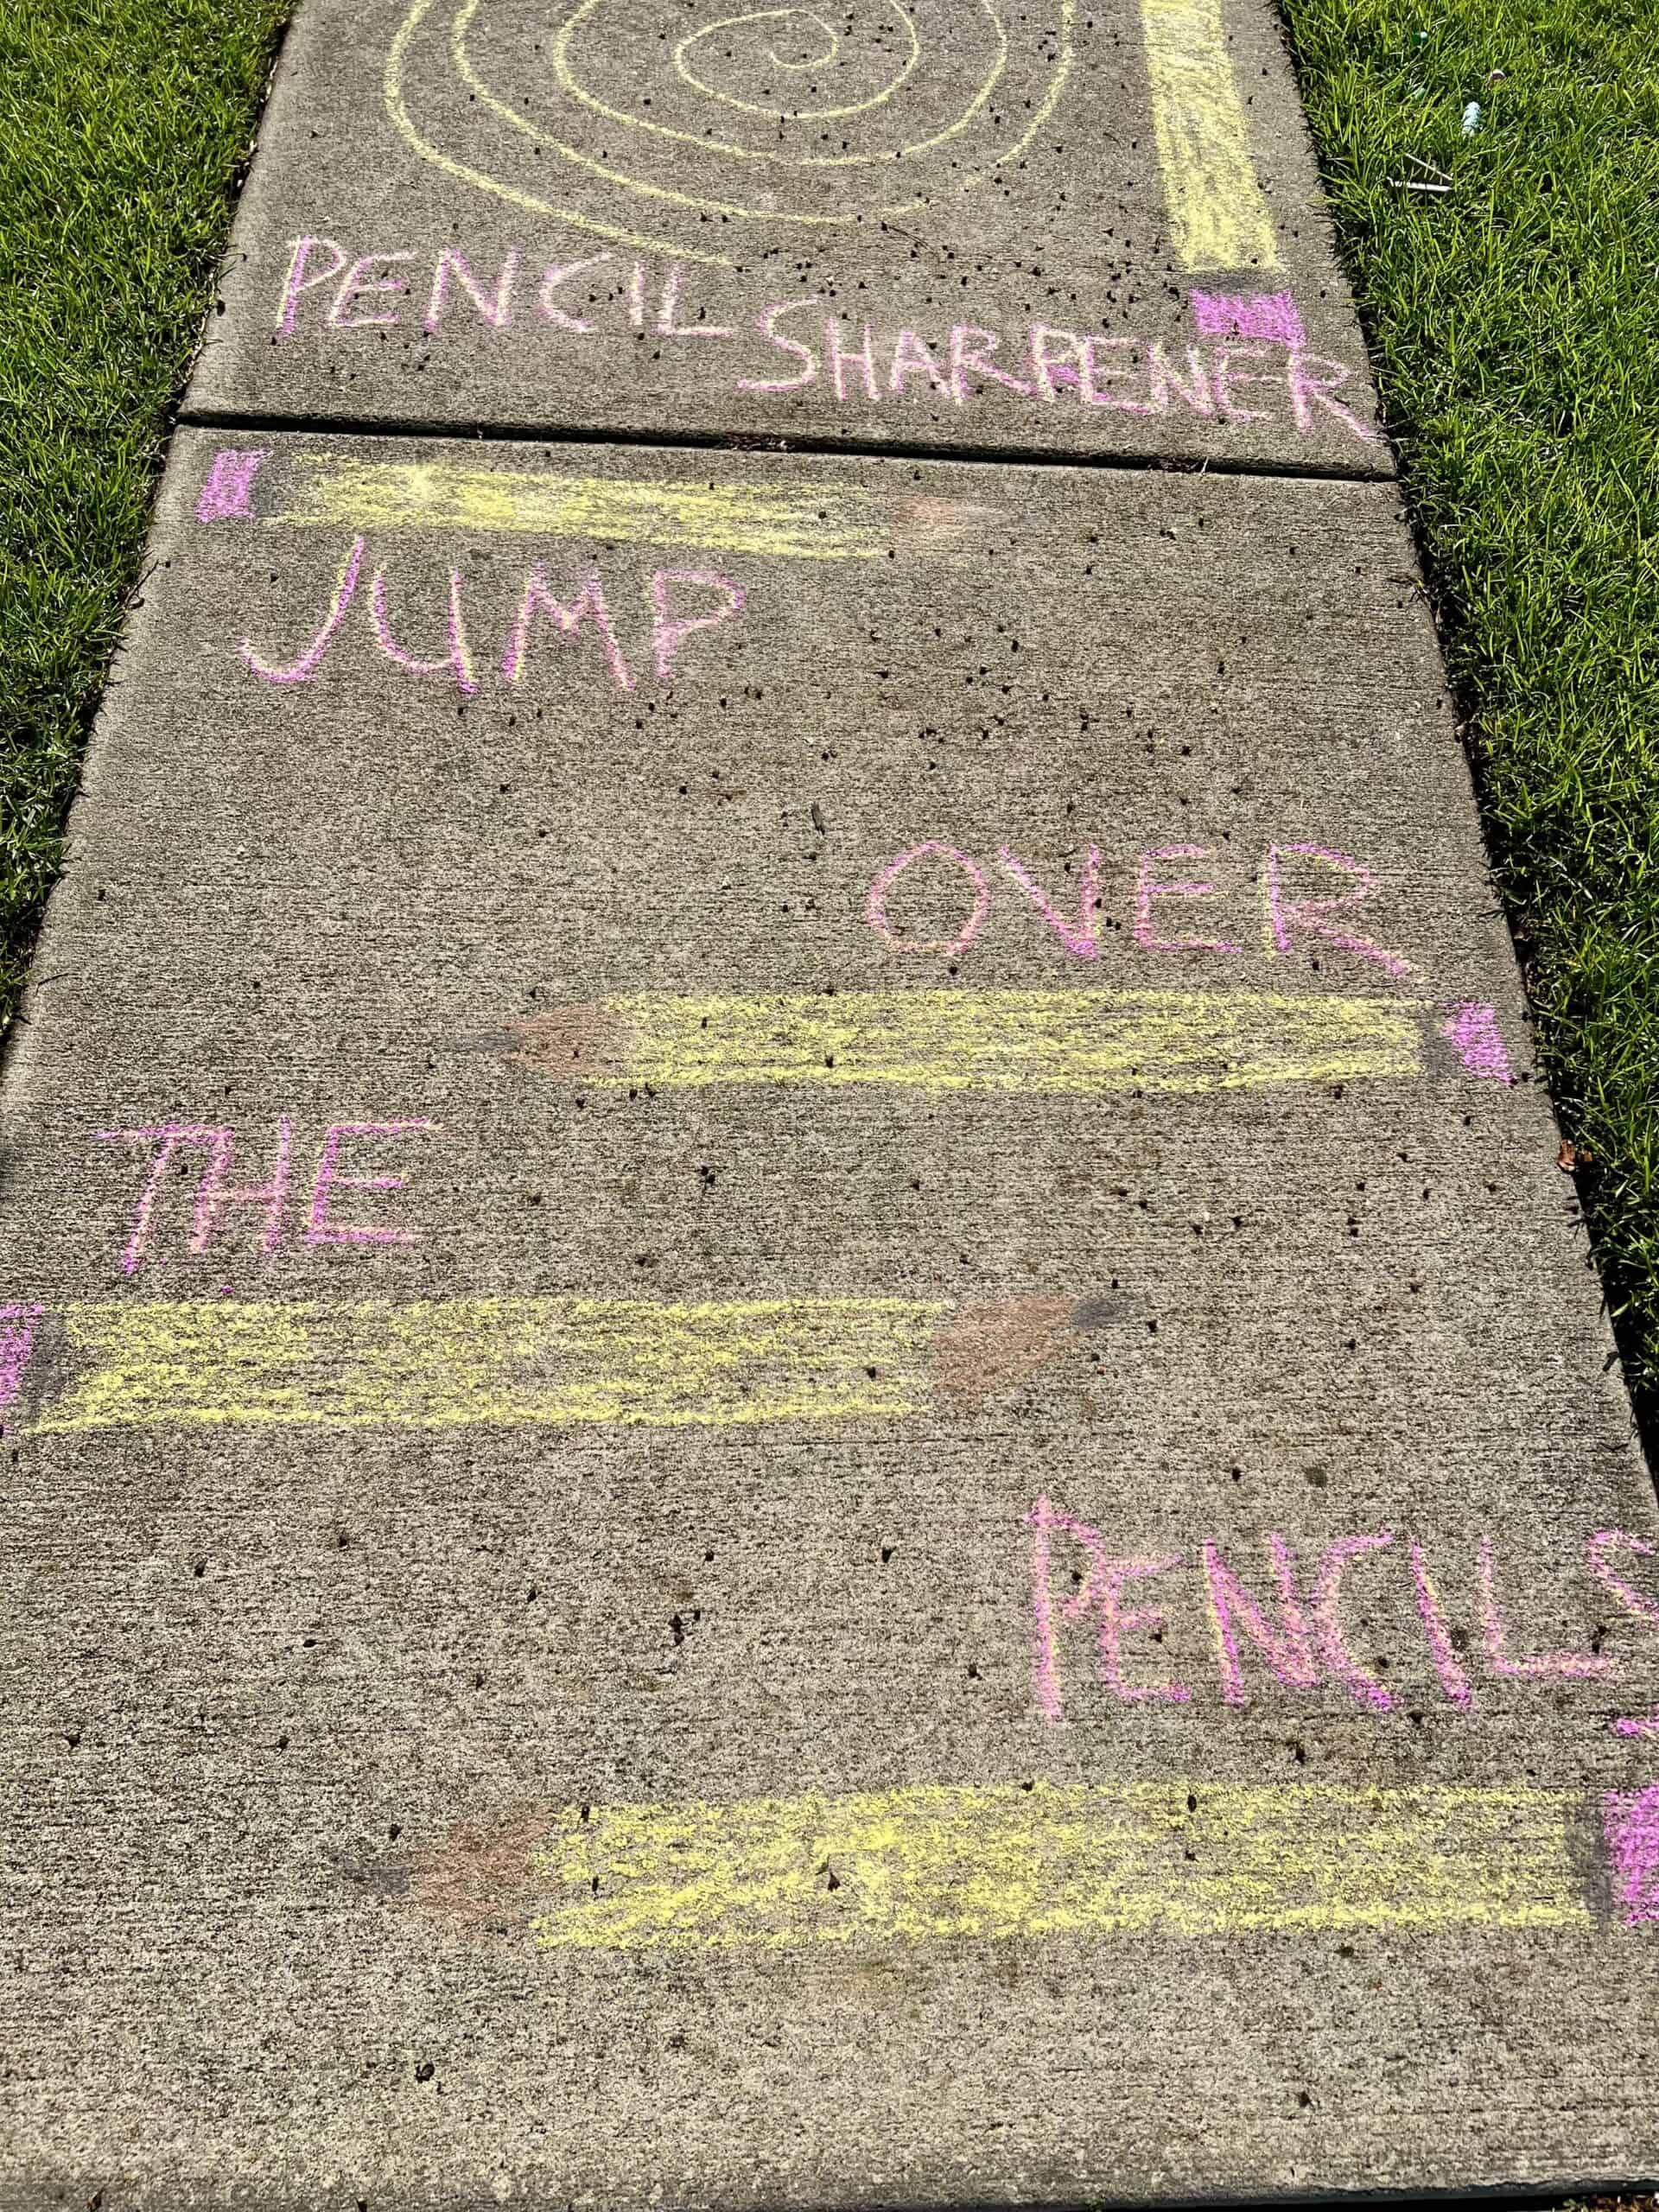 PENCIL SHARPENER
JUMP
OVER
THE
PENCILS